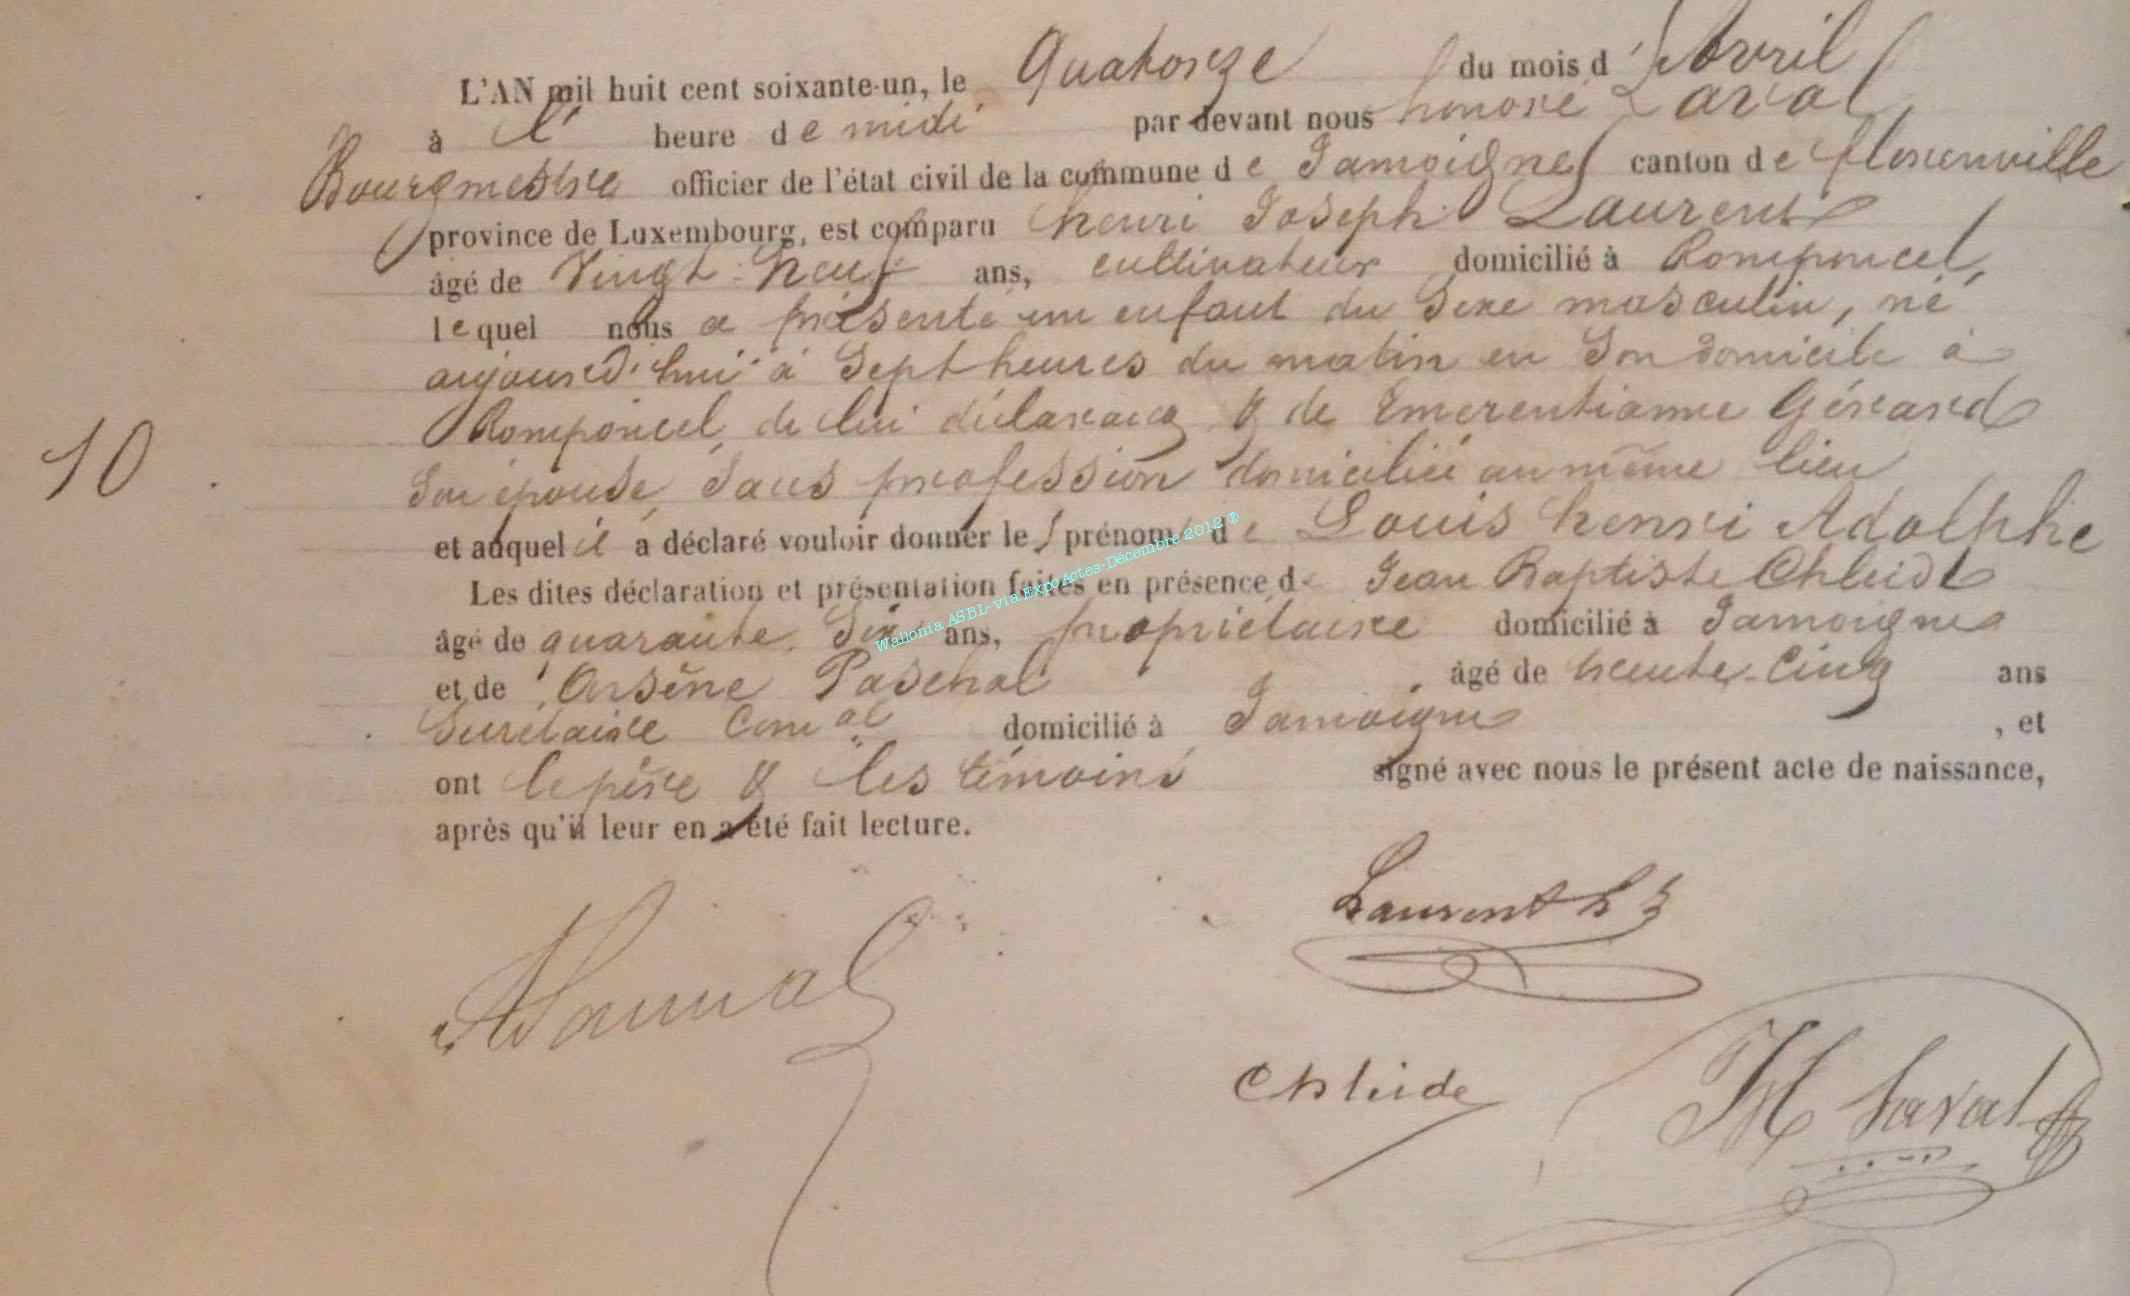 L'AN mil huit cent soixante-un, le Quatorze du mois d'Avril
à l' heure de midi par devant nous honoré Laval
Bourgmestre officier de l'état civil de la commune de Jamoigne canton de florenville
province de Luxembourg, est comparu henri Joseph Laurent
âgé de Vingt-neuf ans, cultivateur domicilié à Romponcel,
lequel nous a présenté un enfant du sexe masculin, né
aujourd'hui à Sept heures du matin en son domicile à
Romponcel, de lui déclarant & de Emerentianne Gérard
son épouse, sans profession domiciliée au même lieu
et auquel il a déclaré vouloir donner les prénoms de Louis henri Adolphe
Les dites déclaration et présentation faites en présence de Jean Baptiste Chleide
âgé de quarante-six ans, propriétaire domicilié à Jamoigne
et de Arsène Paschal âgé de trente-cinq ans
Secrétaire Com^al domicilié à Jamoigne, et
ont le père & les témoins signé avec nous le présent acte de naissance,
après qu'il leur en a été fait lecture.
10
Wallonia ASBL-via ExpoActes-Décembre 2012 ®
Laurent
Chleide
H Laval